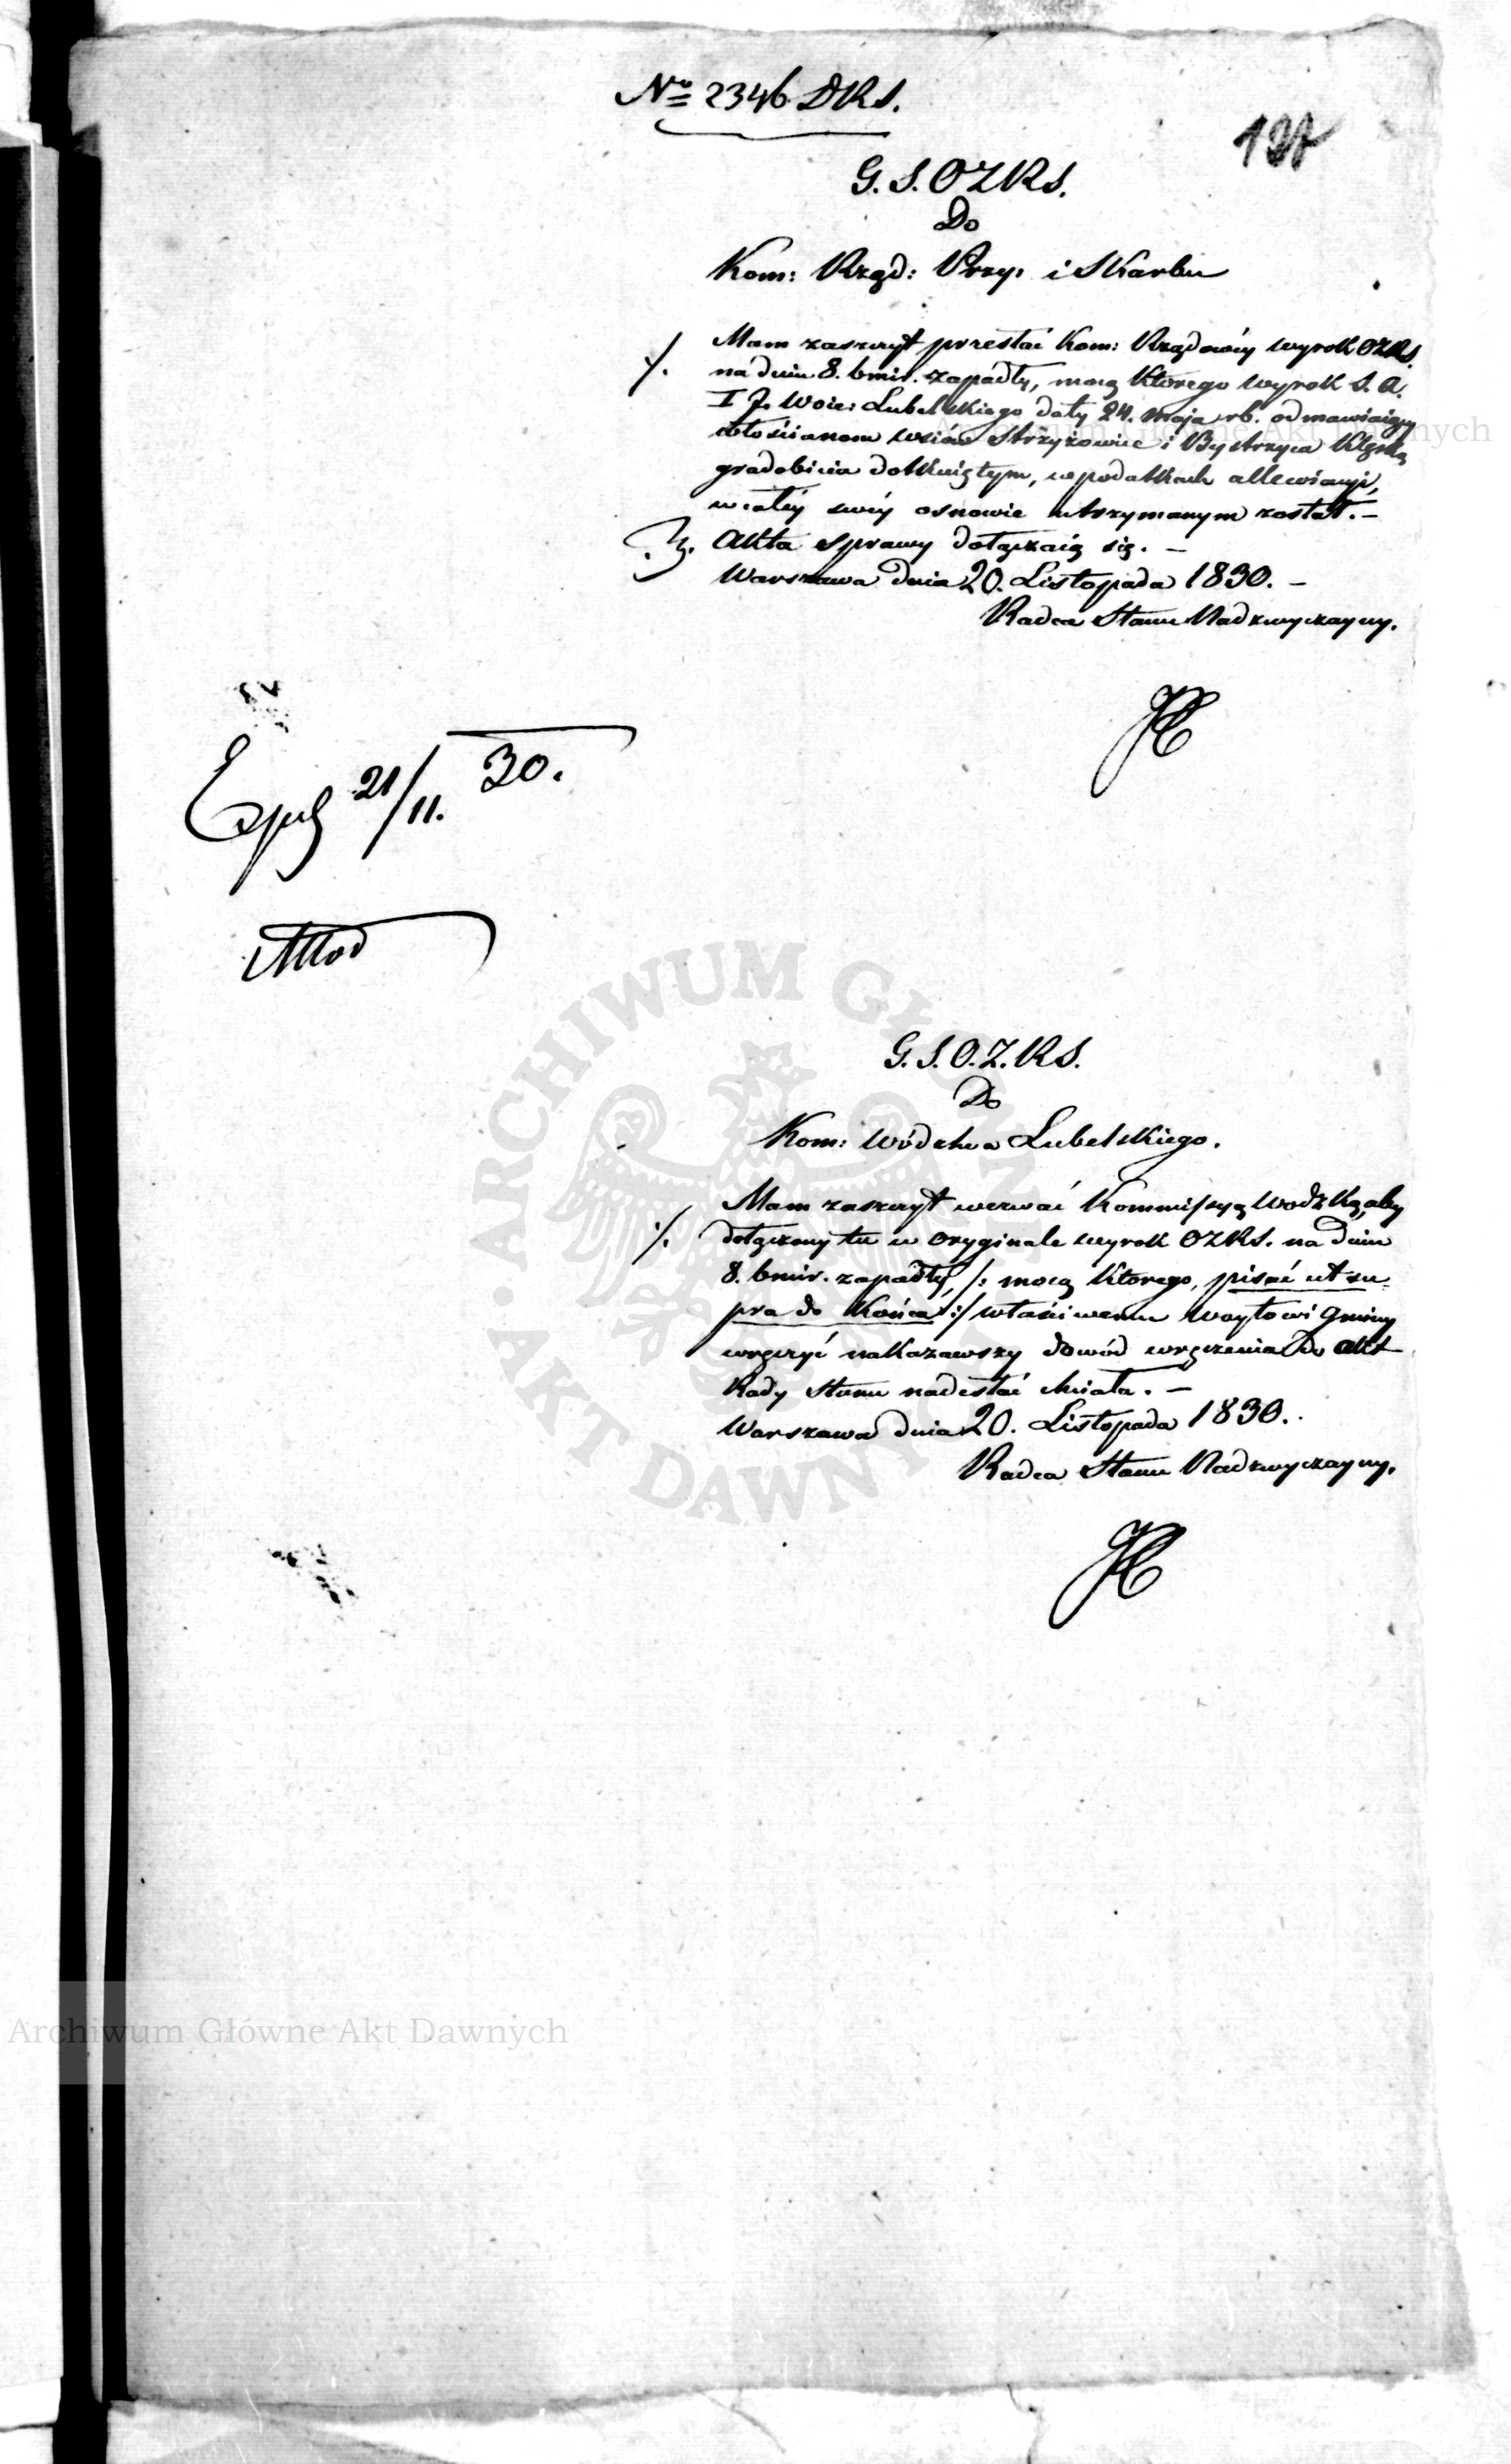 No 2346 DRS.
127
G. S. OZRS.
Do
Kom: Rząd: Przy: i Skarbu
Mam zaszczyt przesłać Kom: Rządowéy wyrok OZRS.
na dniu 8. bmir. zapadły, mocą którego wyrok S. A.
I J. Woie: Lubelskiego daty 24. Maja rb. odmawiaiący
włościanom wsiów Strzyżowice i Bystrzyca klęską
gradobicia dotkniętym, w podatkach allewiacyi,
w całéy swéy osnowie utrzymanym został. –
Akta sprawy dołączaią się. –
Warszawa dnia 20. Listopada 1830. –
Radca Stanu Nadzwyczayny.
21/11. 30.
G. S. O. Z. RS.
Do
Kom: Wództwa Lubelskiego.
Mam zaszczyt wezwać Kommissyą Wodzką, aby
dołączony tu w oryginale wyrok OZRS. na dniu
8. bmir. zapadły, /: mocą którego, pisać ut su-
pra do końca :/ właściwemu Woytowi Gminy
wręczyć nakazawszy dowód wręczenia do akt
Rady Stanu nadesłać chciała. –
Warszawa dnia 20. Listopada 1830.
Radca Stanu Nadzwyczayny.
ARCHIWUM GŁÓWNE AKT DAWNYCH
Archiwum Główne Akt Dawnych
Archiwum Główne Akt Dawnych